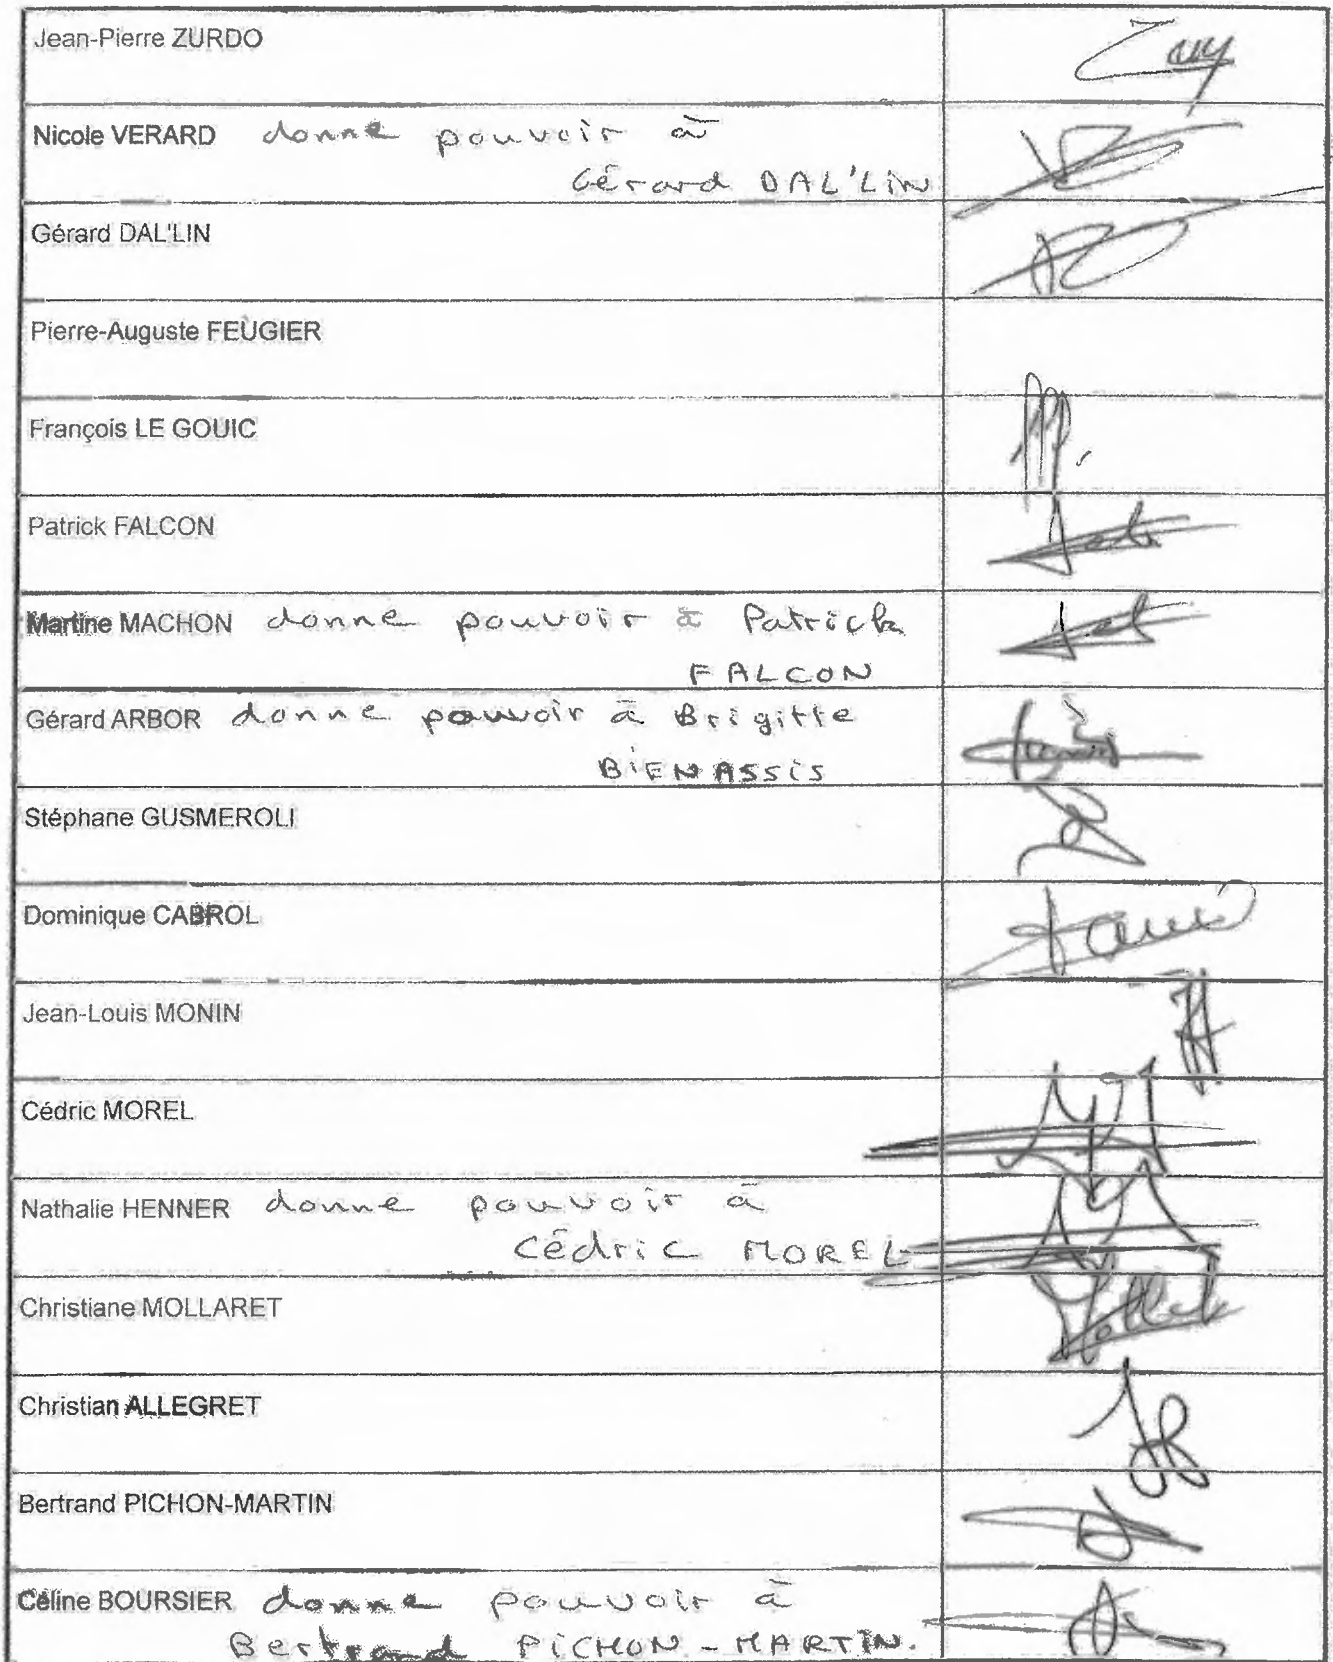 Jean-Pierre ZURDO
Nicole VERARD donne pouvoir à
Gérard DAL'LIN
Gérard DAL'LIN
Pierre-Auguste FEUGIER
François LE GOUIC
Patrick FALCON
Martine MACHON donne pouvoir à Patrick
FALCON
Gérard ARBOR donne pouvoir à Brigitte
BIENASSIS
Stéphane GUSMEROLI
Dominique CABROL
Jean-Louis MONIN
Cédric MOREL
Nathalie HENNER donne pouvoir à
Cédric MOREL
Christiane MOLLARET
Christian ALLEGRET
Bertrand PICHON-MARTIN
Céline BOURSIER donne pouvoir à
Bertrand PICHON-MARTIN.